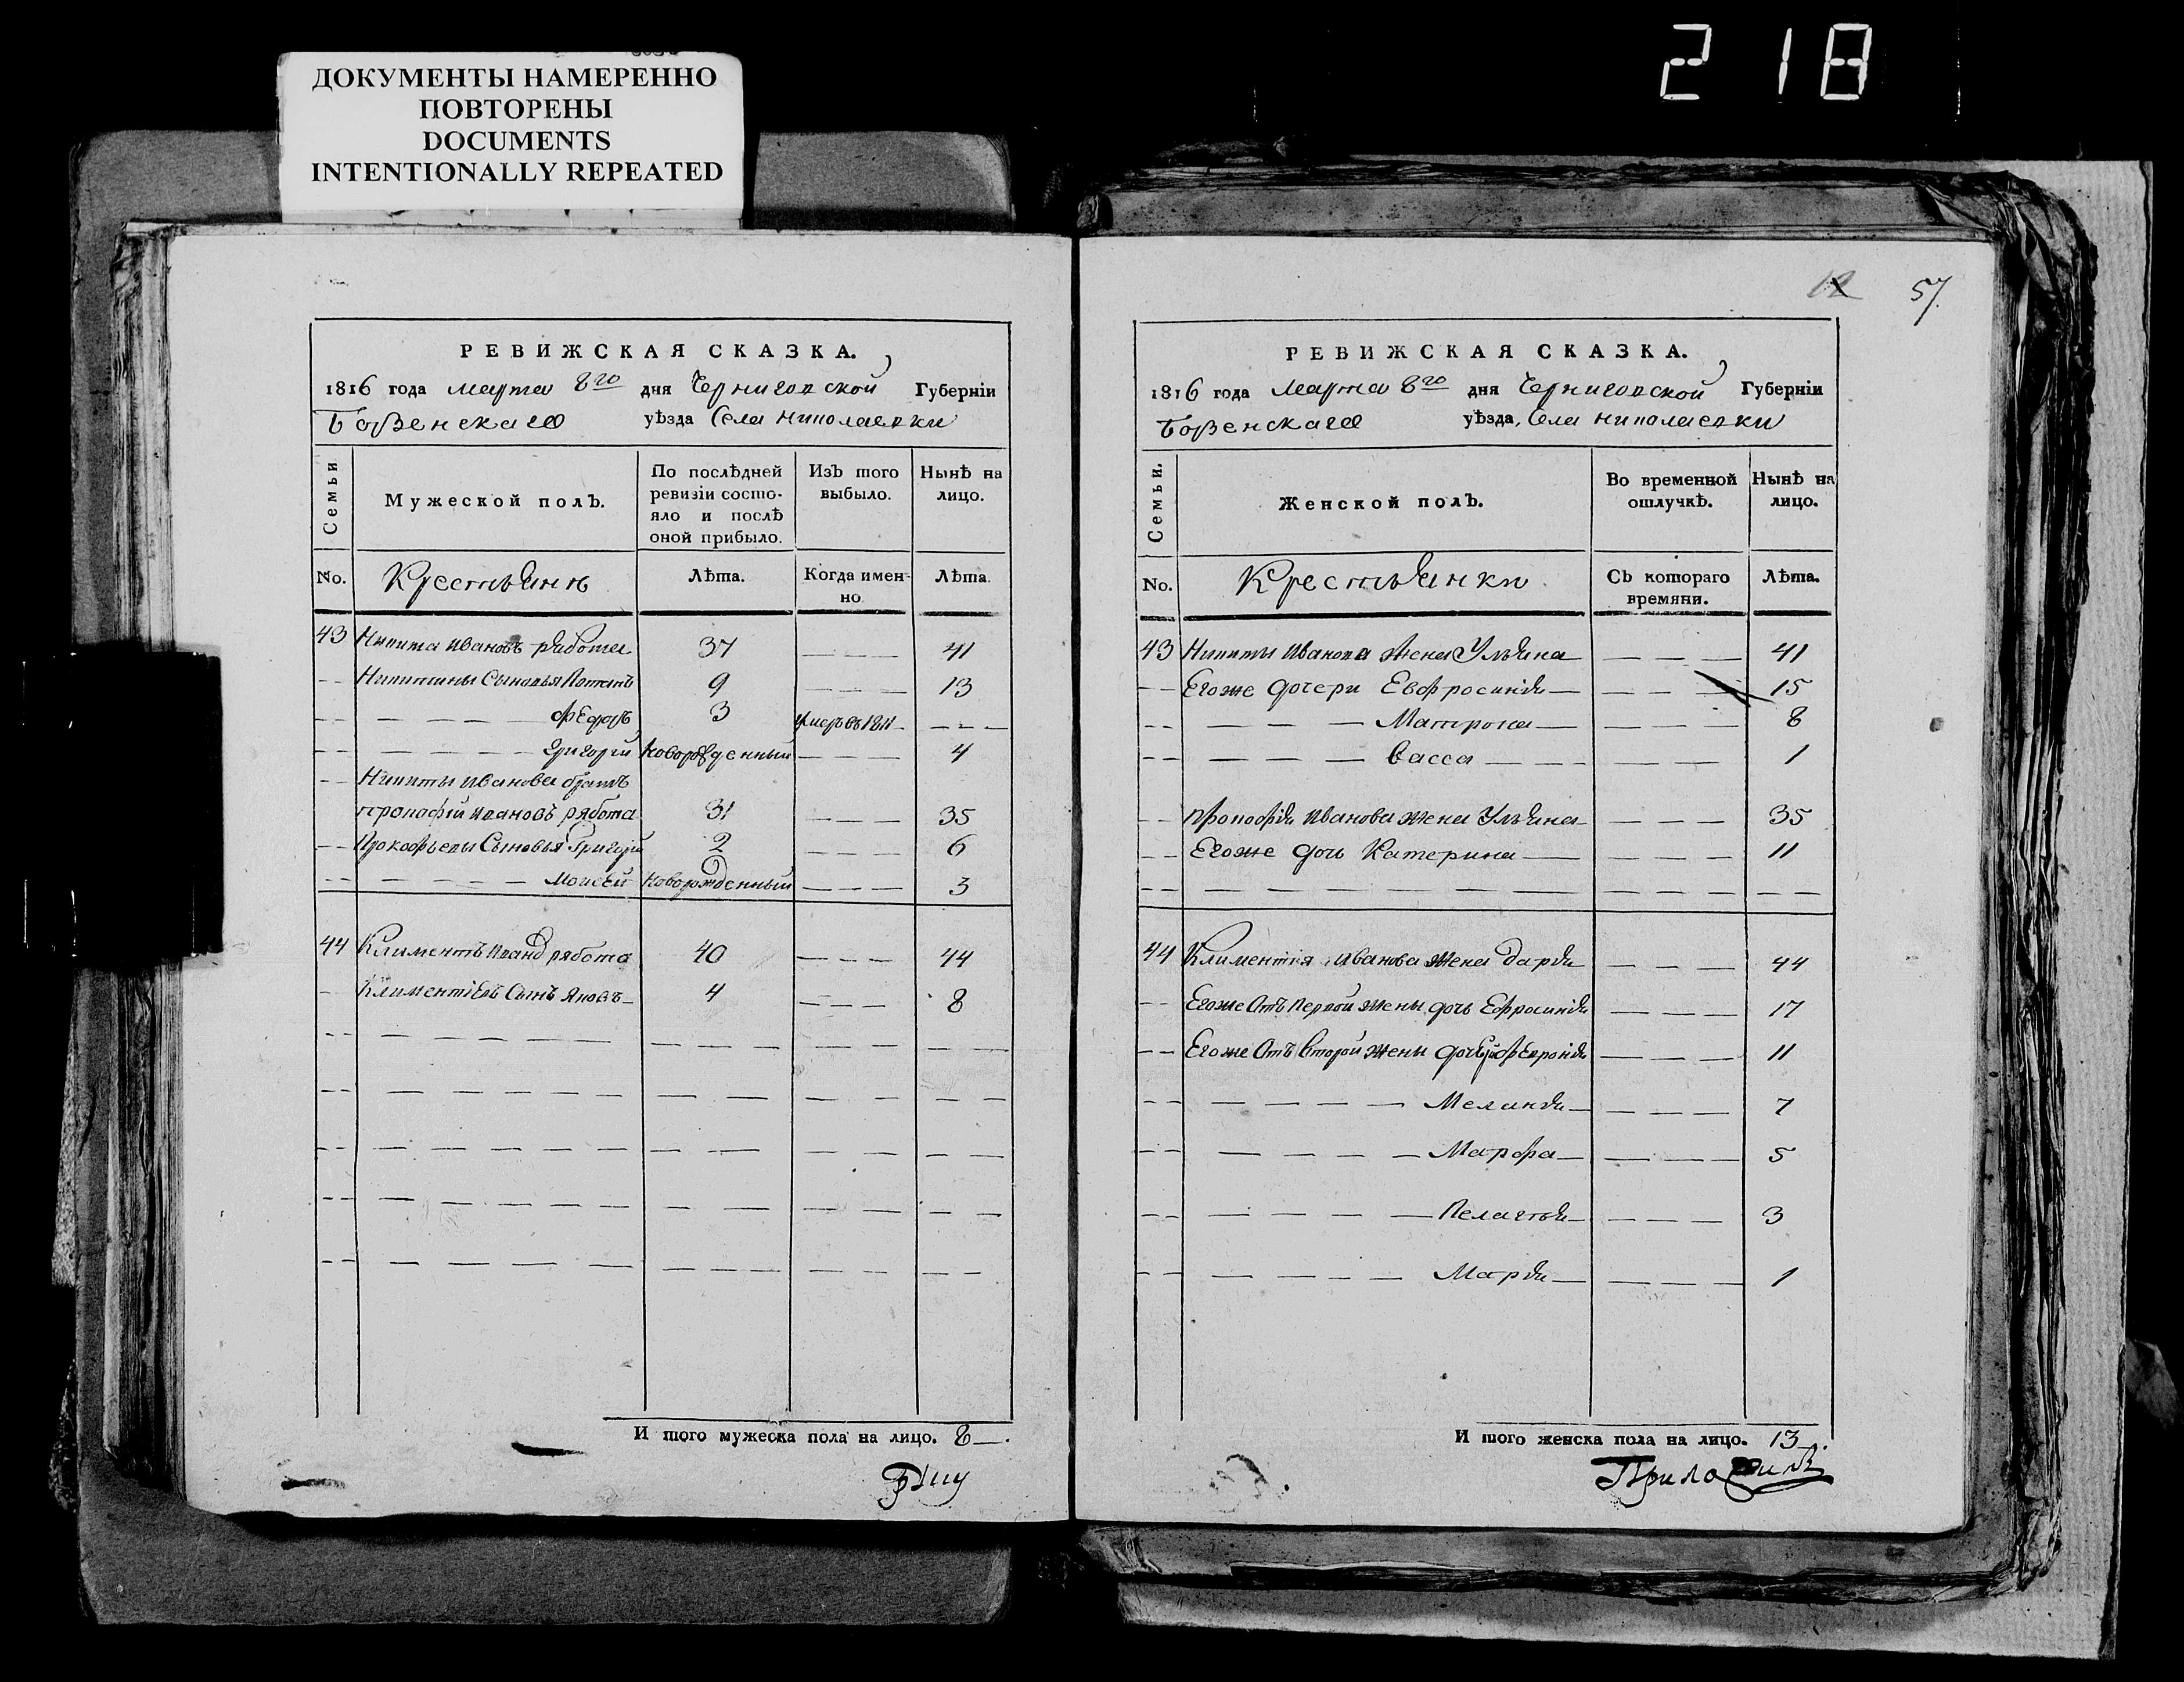 218
ДОКУМЕНТЫ НАМЕРЕННО
ПОВТОРЕНЫ
DOCUMENTS
INTENTIONALLY REPEATED
РЕВИЖСКАЯ СКАЗКА.
1816 года марта 8го дня Черниговской Губернїи
Борзенскаго уѣзда Села Николаевки
Семьи
Мужеской полъ.
По послѣдней ревизїи состояло и послѣ оной прибыло.
Изъ того выбыло.
Нынѣ на лицо.
No. Крестьянъ Лѣта. Когда именно Лѣта.
43 Никита Ивановъ рябота 37 — — — 41
-- Никитины Сыновья 9 — — — 13
-- — — — — Федоръ 3 умеръ въ 1811 - - -
-- — — — — Григорїй Новорожденный — — — 4
-- Никиты Иванова братъ
Прокофїй Ивановъ рябота 31 — — — 35
-- Прокофьевы Сыновья Григорїй 2 — — — 6
-- — — — — Моисей Новорожденный — — — 3
44 Климентъ Иванов рябота 40 — — — 44
- Климентїевъ Сынъ Яковъ 4 — — — 8
И того мужеска пола на лицо. 8
12 57
РЕВИЖСКАЯ СКАЗКА.
1816 года Марта 8го дня Черниговской Губернїи
Борзенскаго уѣзда, Села Николаевки
Семьи.
Женской полъ.
Во временной отлучкѣ.
Нынѣ на лицо.
No. Крестьянки Съ котораго времяни. Лѣта.
43 Никиты Иванова жена Ульяна — — — 41
-- Егоже дочери Евфросинїя — — — 15
-- — — — Матрона — — — — 8
-- — — — Васса — — — — 1
-- Прокофїя Иванова жена Ульяна — — — 35
-- Егоже дочь Катерина — — — 11
44 Климентїя Иванова жена Дарья — — — 44
-- Егоже Отъ Первой жены дочь Ефросинїя — — — 17
-- Егоже Отъ Второй жены — — — 11
-- — — — — Меланья — — — 7
-- — — — — Марфа — — — 5
-- — — — — Пелагея — — — 3
-- — — — — Марья — — — 1
И того женска пола на лицо. 13